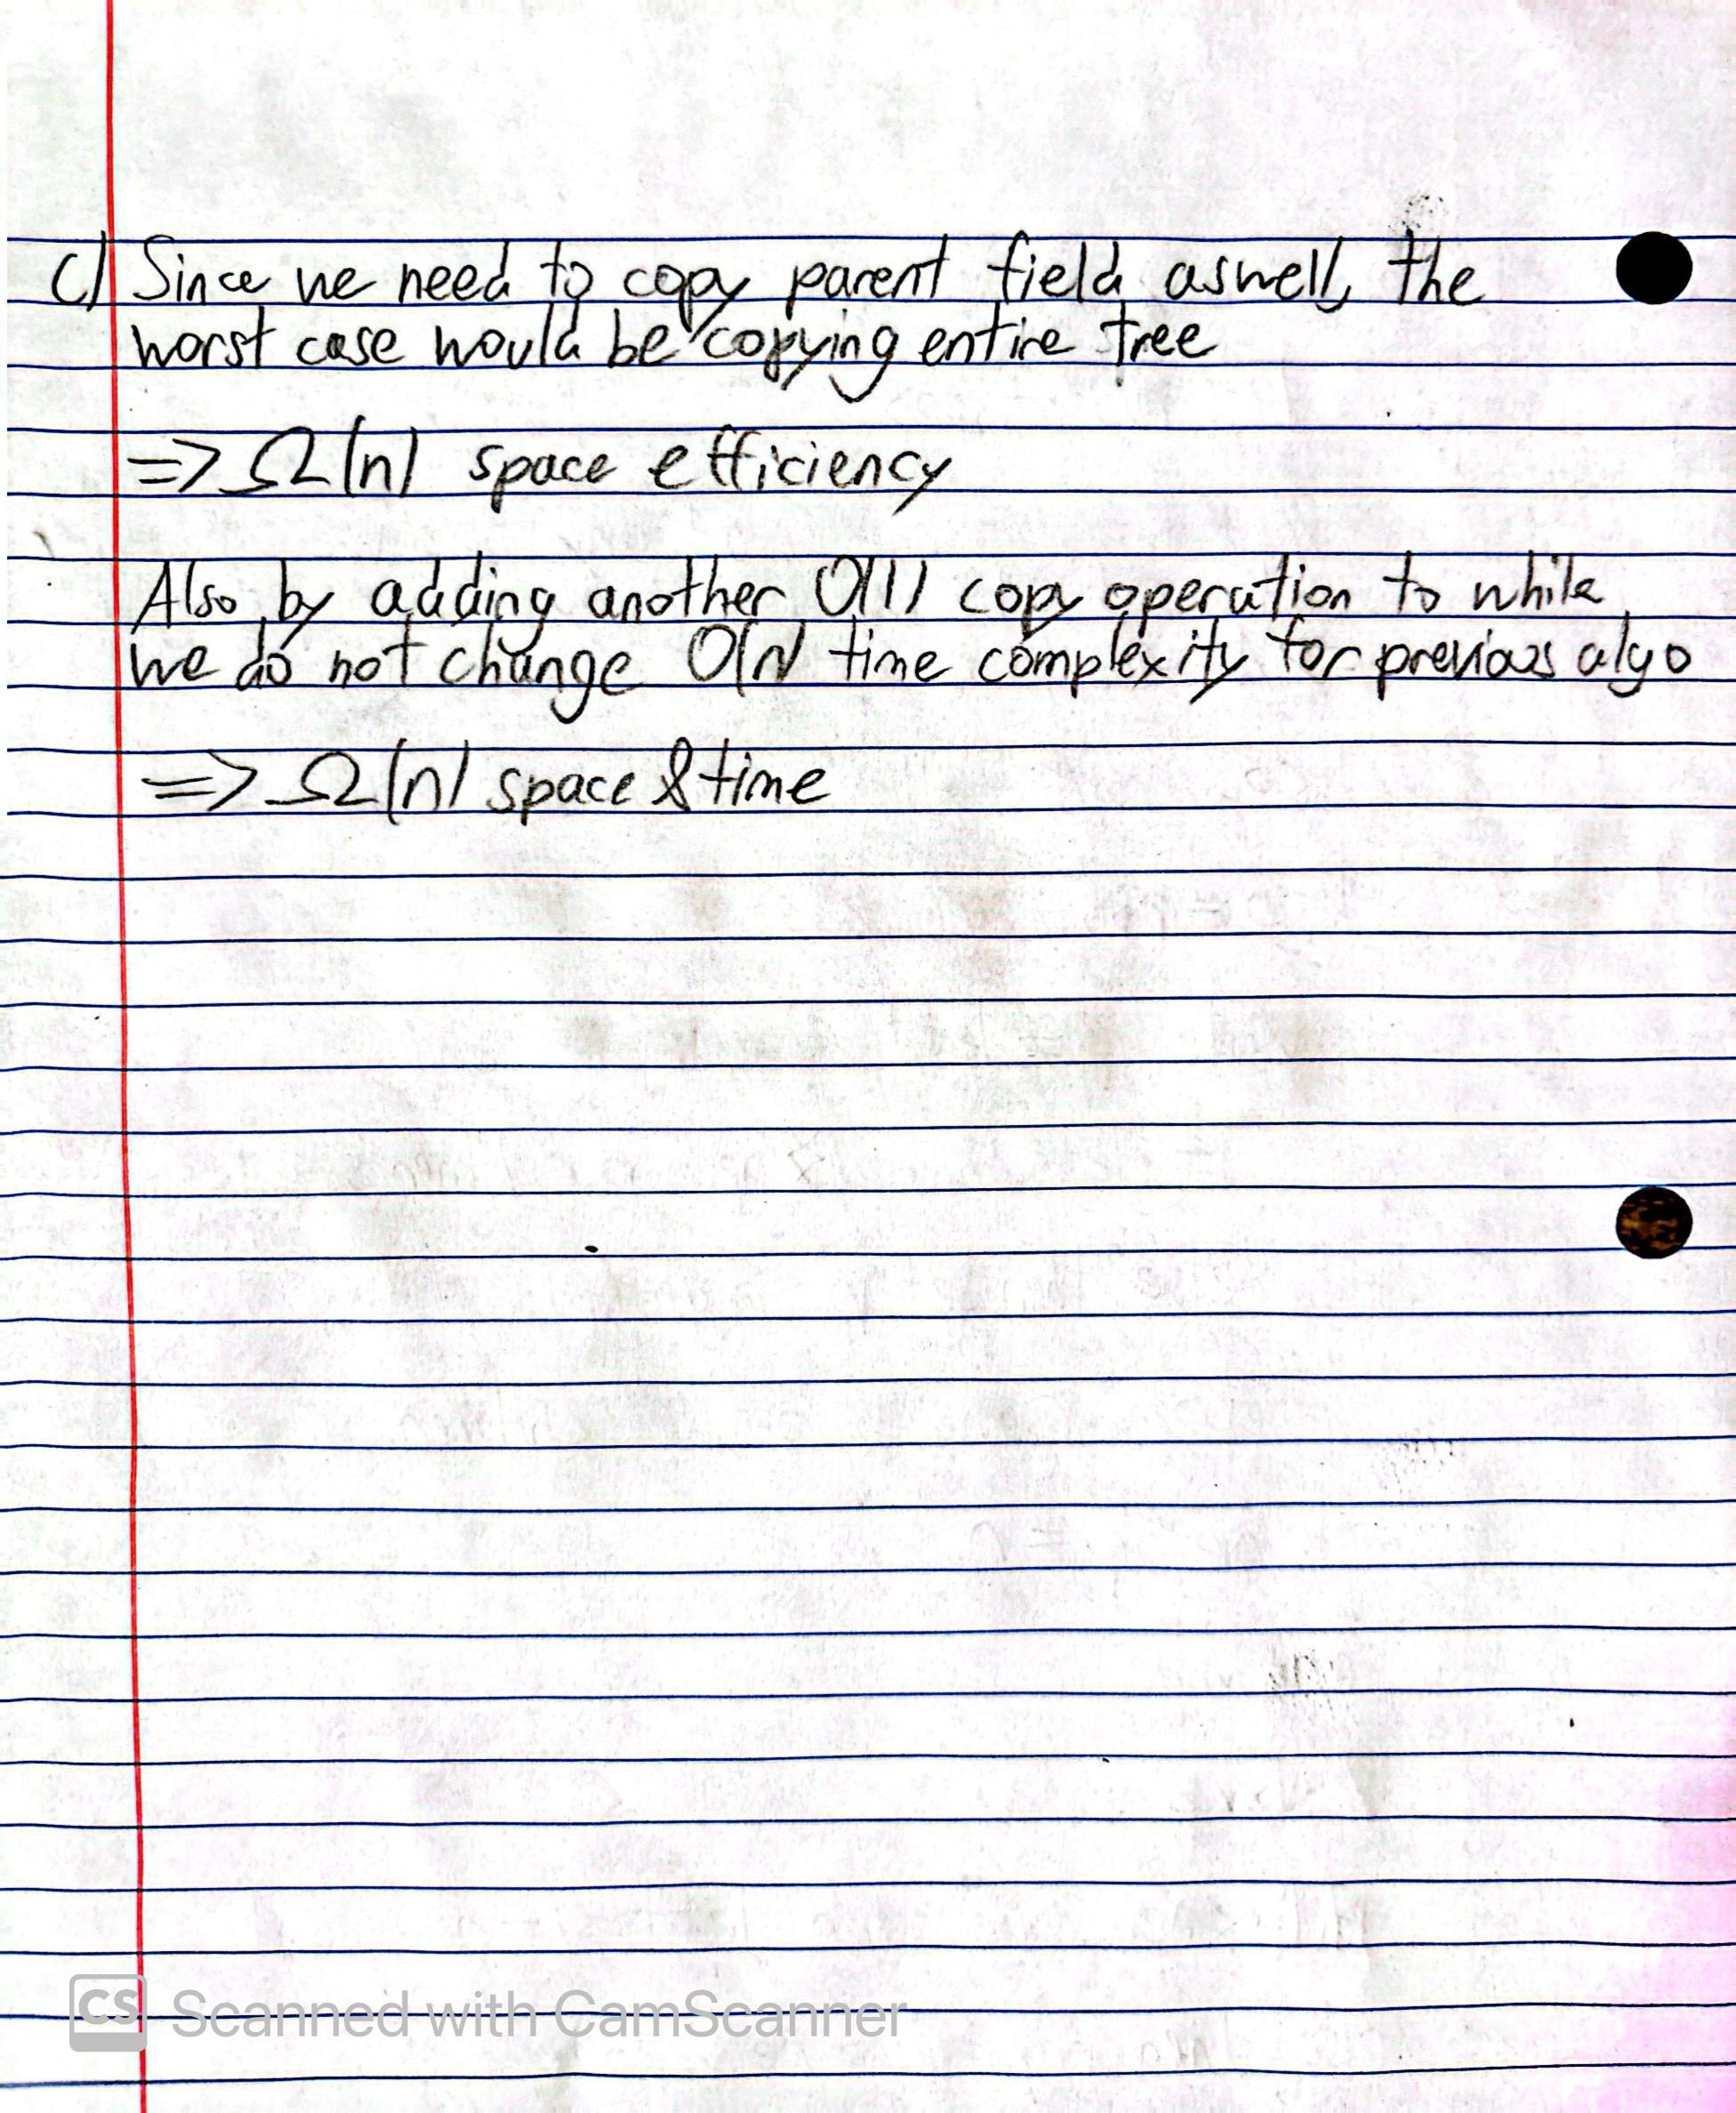 c) Since we need to copy parent field aswell, the
worst case would be copying entire tree
=> Ω(n) space efficiency
Also by adding another O(1) copy operation to while
we do not change O(n) time complexity for previous algo
=> Ω(n) space & time
CS Scanned with CamScanner